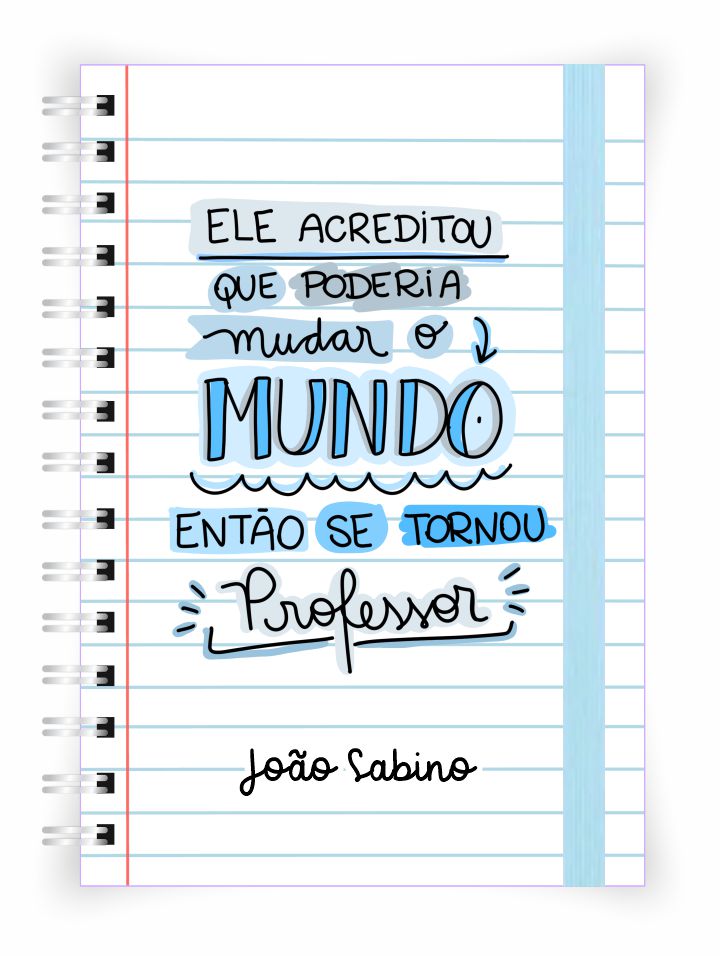 ELE ACREDITOU
QUE PODERIA
mudar o
MUNDO
ENTÃO SE TORNOU
Professor
João Sabino